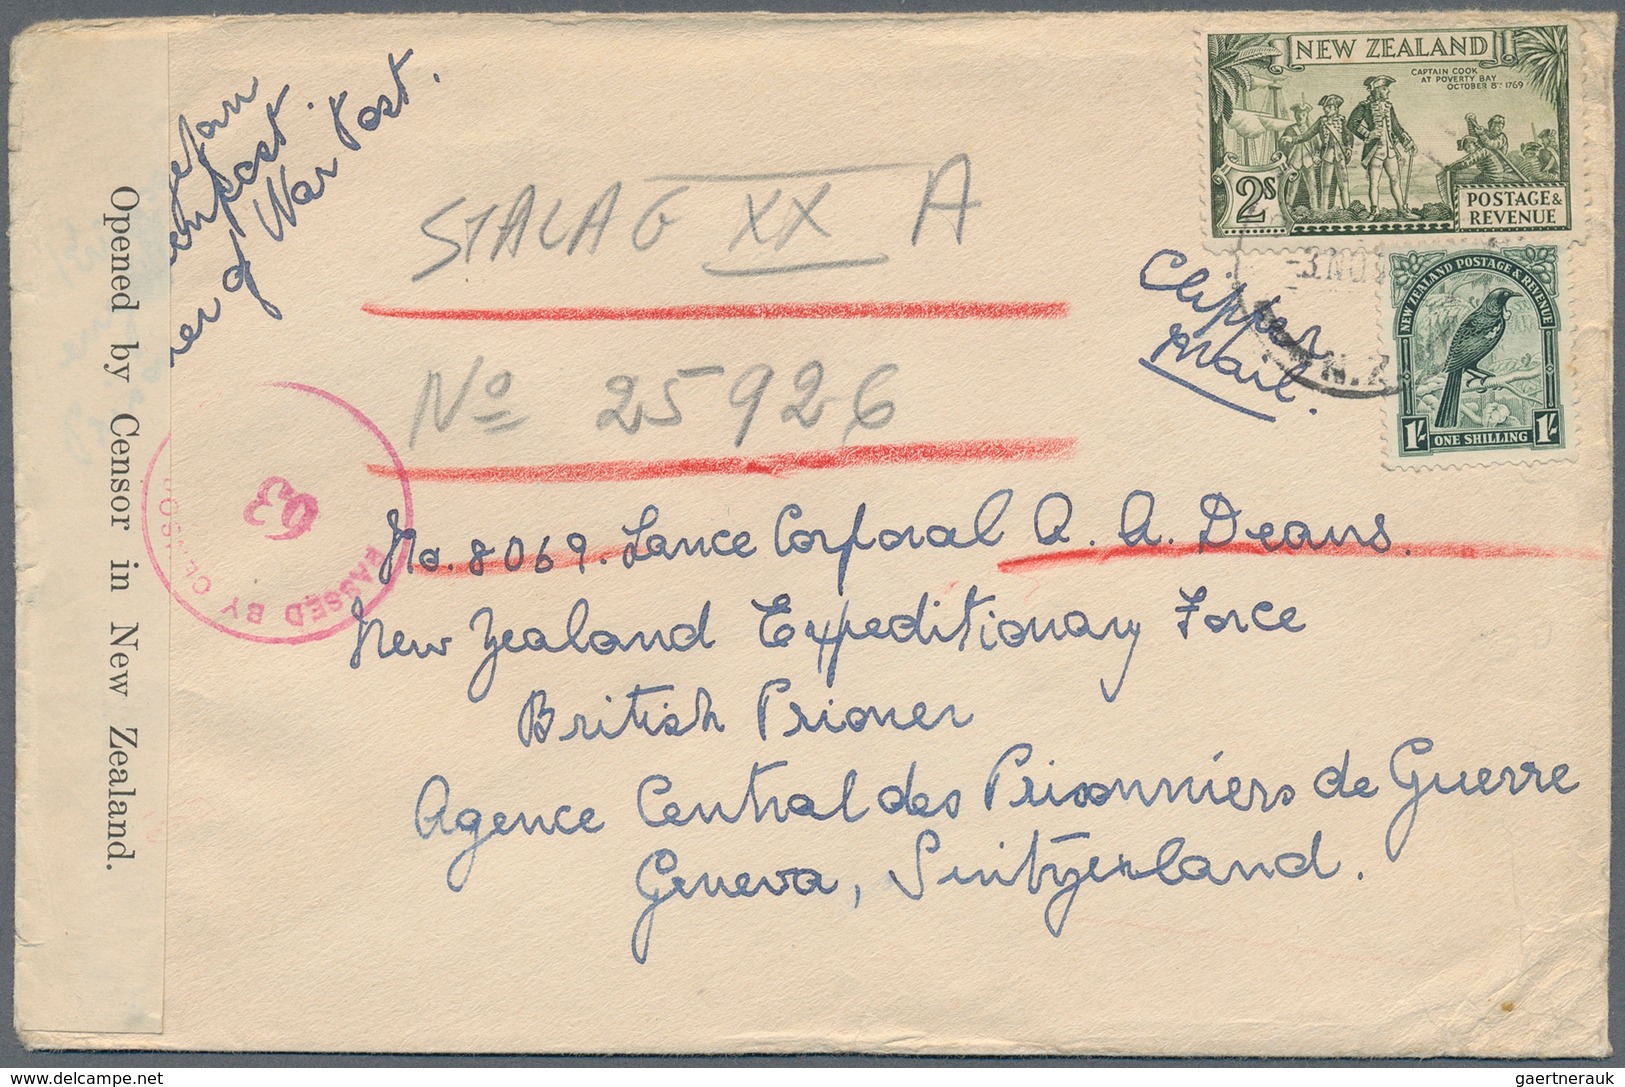 War Post.
NEW ZEALAND
CAPTAIN COOK
AT POVERTY BAY
OCTOBER 8TH 1769
2S
POSTAGE &
REVENUE
STALAG XX A
Clipper
Mail.
3 NOV
N.Z
NEW ZEALAND POSTAGE & REVENUE
1/- ONE SHILLING 1/-
No 25926
Opened by Censor in New Zealand.
PASSED BY
93
No. 8069. Lance Corporal A. A. Deans.
New Zealand Expeditionary Force
British Prioner
Agence Central des Prisonniers de Guerre
Geneva, Switzerland.
delcampe.net
gaertnerauk